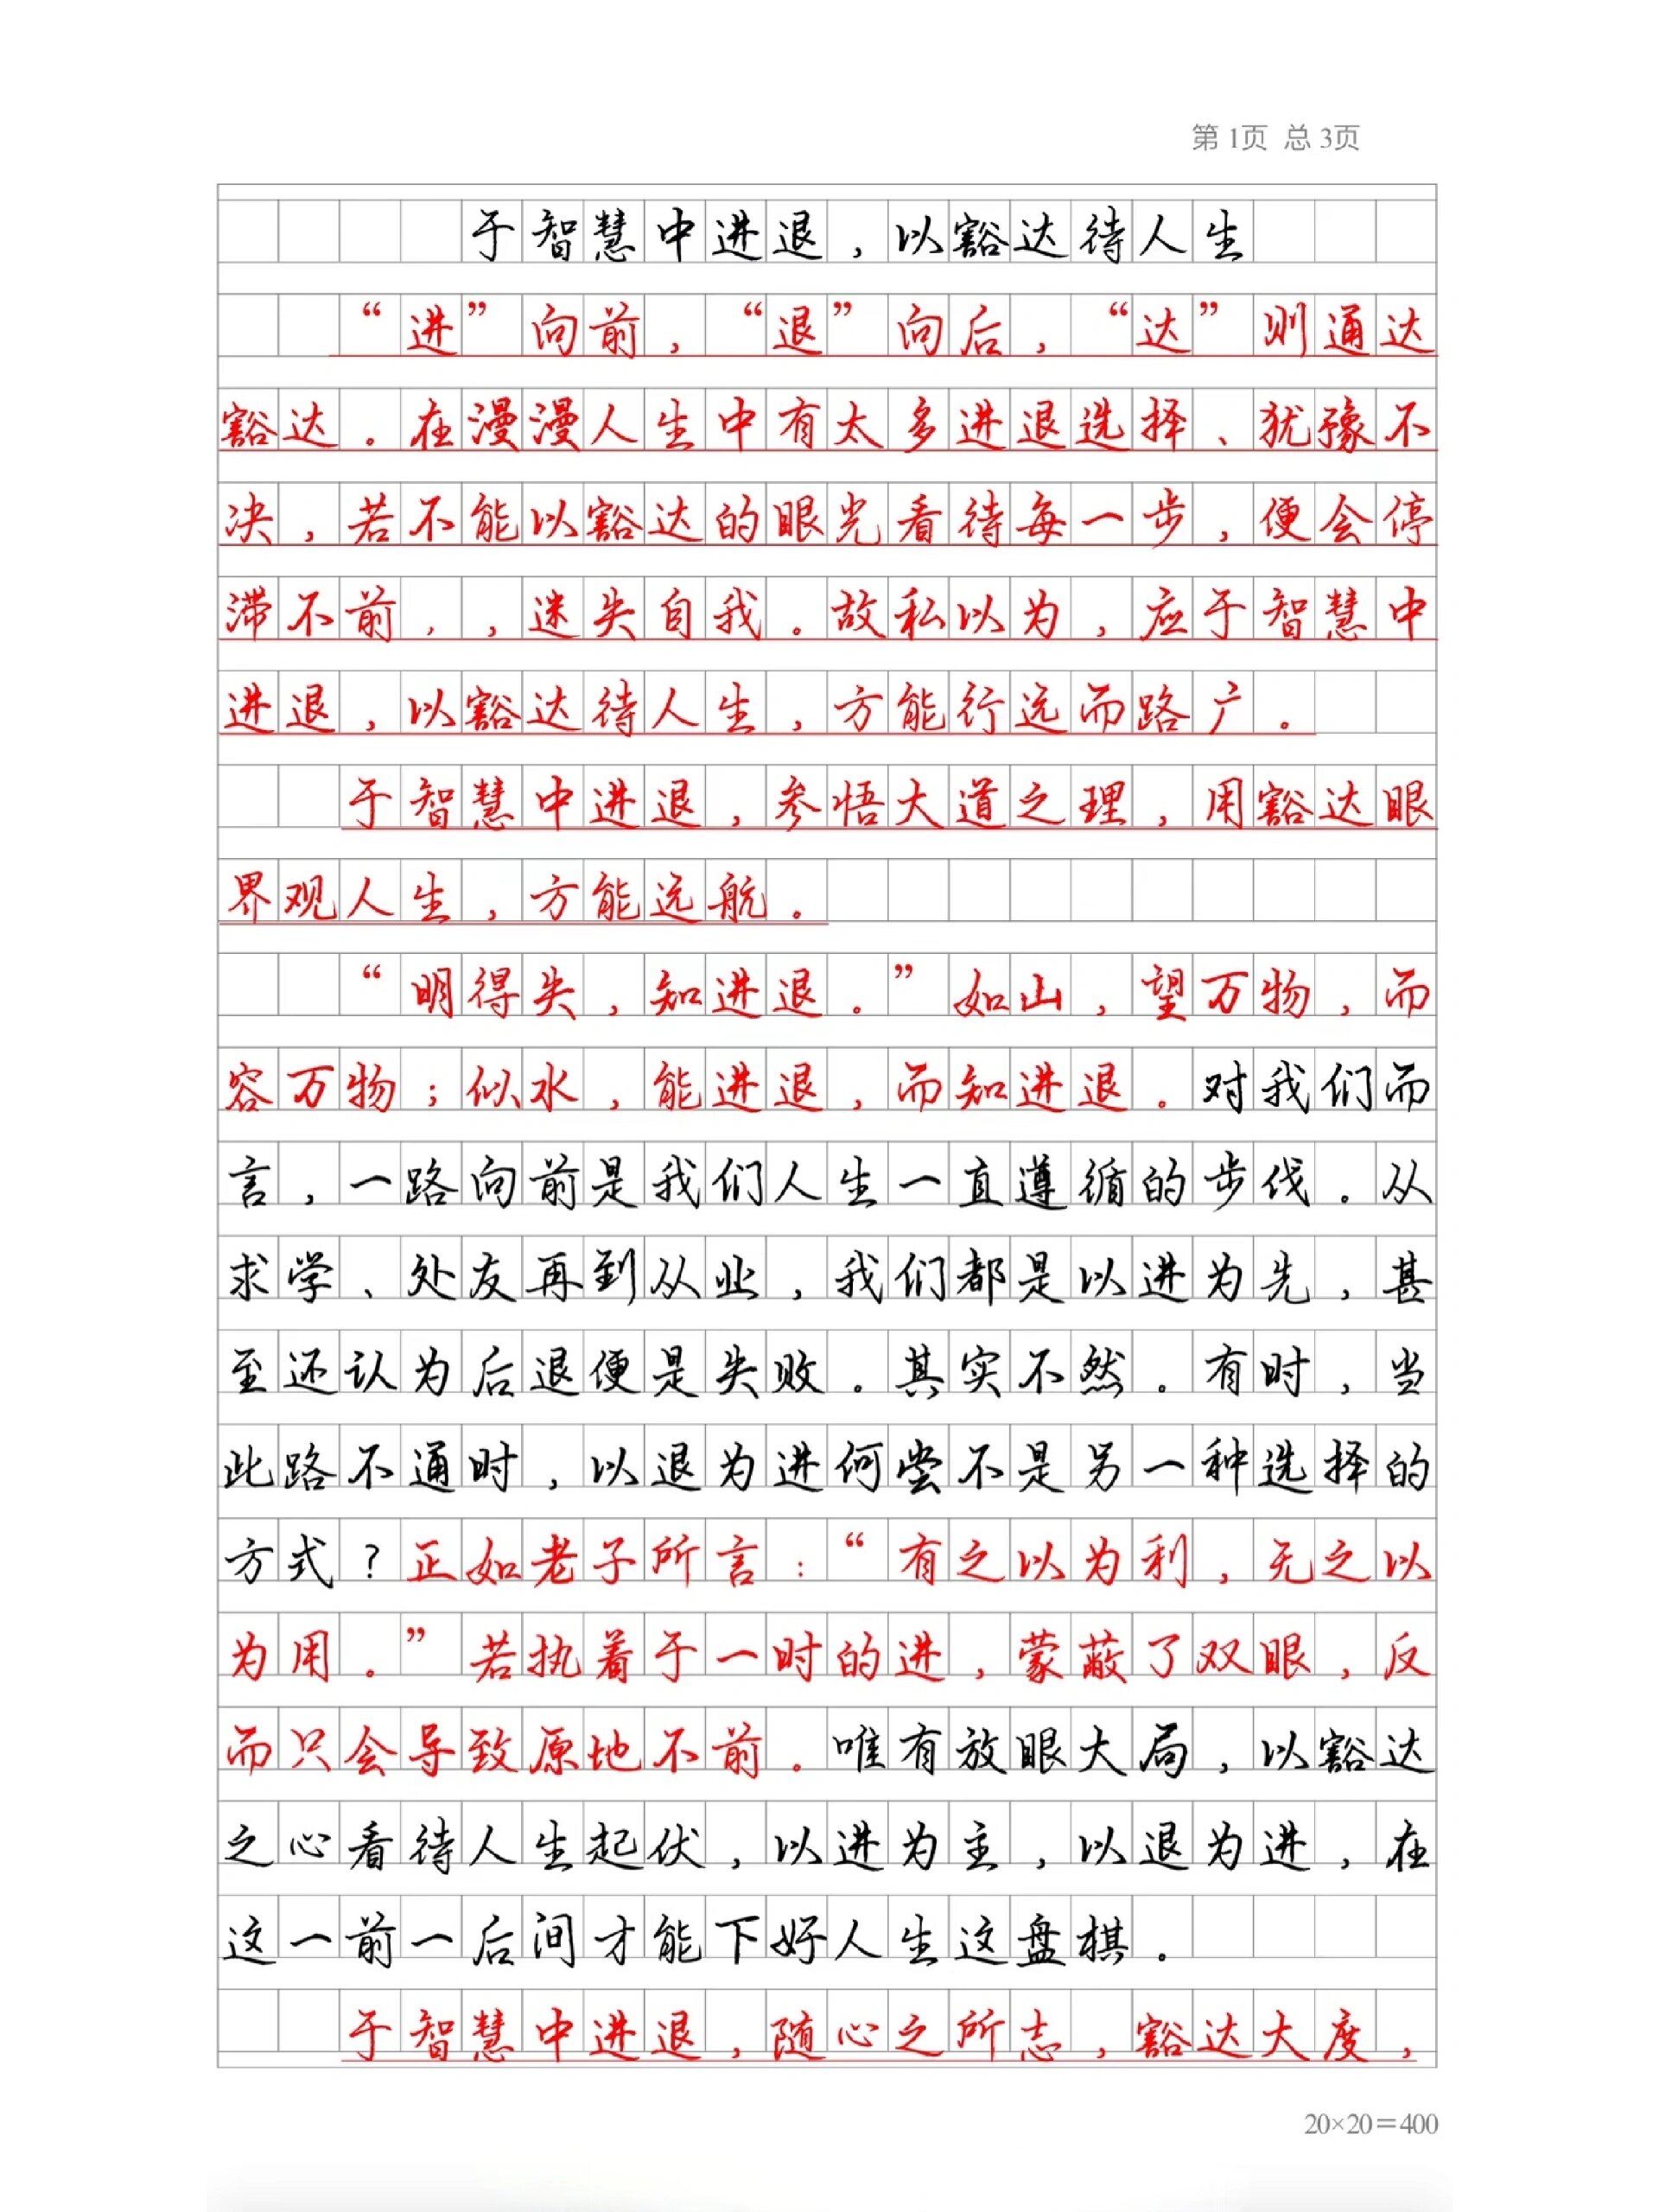 第1页 总3页
于智慧中进退，以豁达待人生
“进”向前，“退”向后，“达”则通达
豁达。在漫漫人生中有太多进退选择、犹豫不
决，若不能以豁达的眼光看待每一步，便会停
滞不前，，迷失自我。故私以为，应于智慧中
进退，以豁达待人生，方能行远而路广。
于智慧中进退，参悟大道之理，用豁达眼
界观人生，方能远航。
“明得失，知进退。”如山，望万物，而
容万物；似水，能进退，而知进退。对我们而
言，一路向前是我们人生一直遵循的步伐。从
求学、处友再到从业，我们都是以进为先，甚
至还认为后退便是失败。其实不然。有时，当
此路不通时，以退为进何尝不是另一种选择的
方式？正如老子所言：“有之以为利，无之以
为用。”若执着于一时的进，蒙蔽了双眼，反
而只会导致原地不前。唯有放眼大局，以豁达
之心看待人生起伏，以进为主，以退为进，在
这一前一后间才能下好人生这盘棋。
于智慧中进退，随心之所志，豁达大度，
20×20＝400